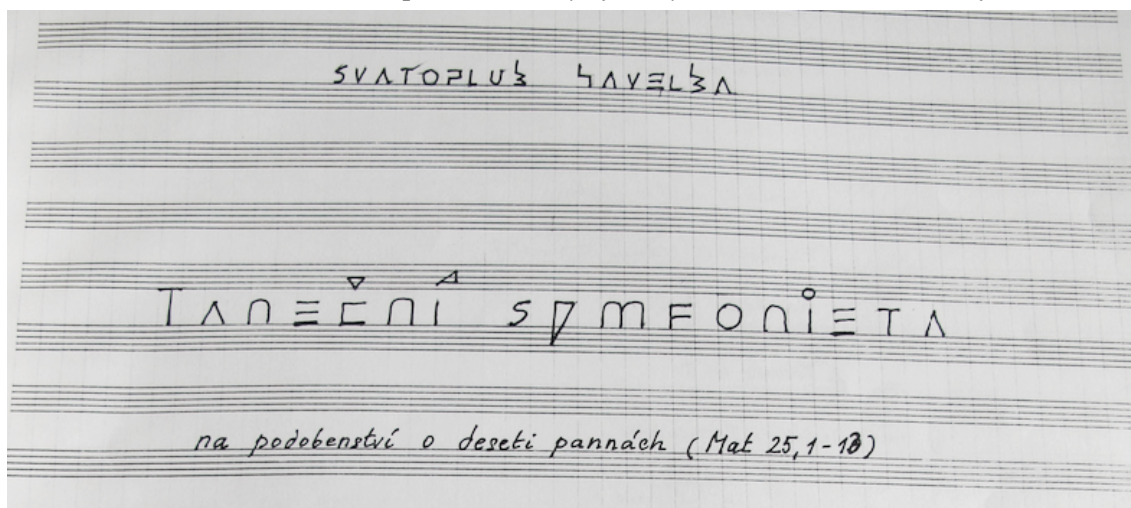 SVATOPLUK HAVELKA
TANEČNÍ SYMFONIETA
na podobenství o deseti pannách (Mat 25,1-13)